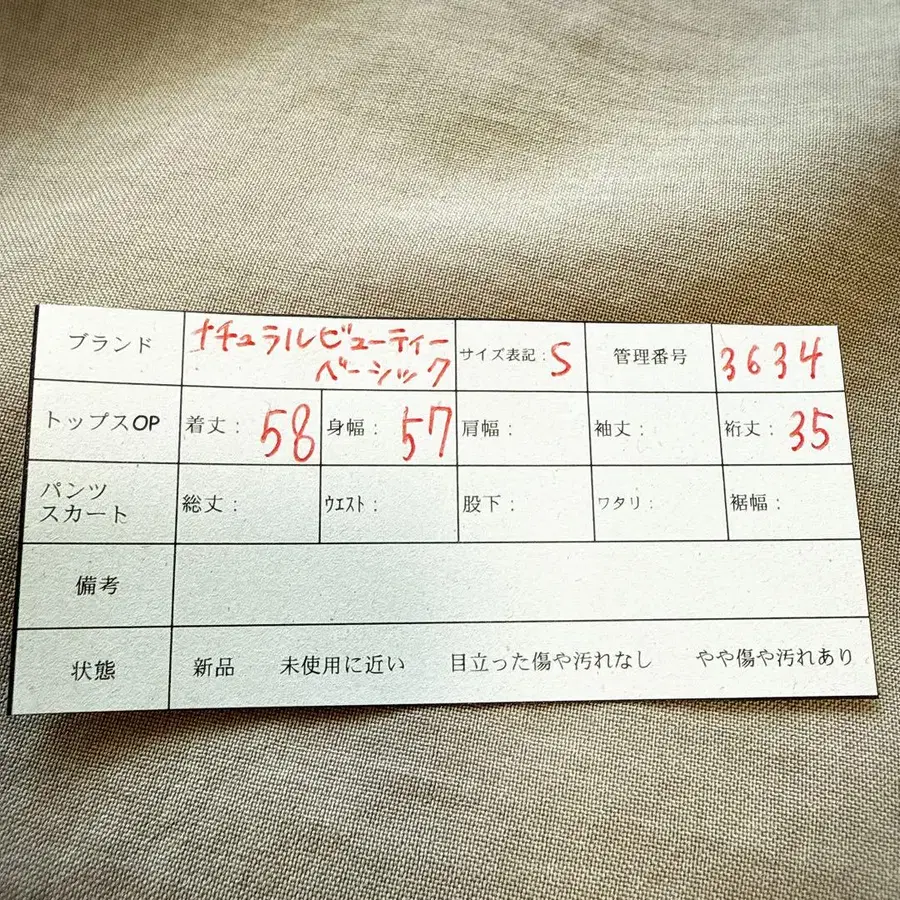 ブランド ナチュラルビューティー
ベーシック サイズ表記：S 管理番号 3634
トップスOP 着丈：58 身幅：57 肩幅： 袖丈： 裄丈：35
パンツ
スカート 総丈： ウエスト： 股下： ワタリ： 裾幅：
備考
状態 新品 未使用に近い 目立った傷や汚れなし やや傷や汚れあり